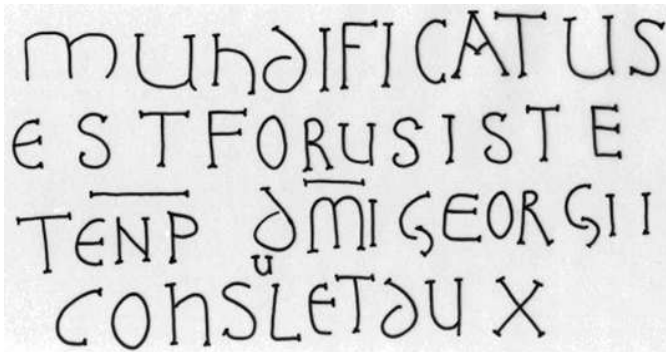 MUNDIFICATUS
EST FORUS ISTE
TENP DMI GEORGII
CONSULET DUX